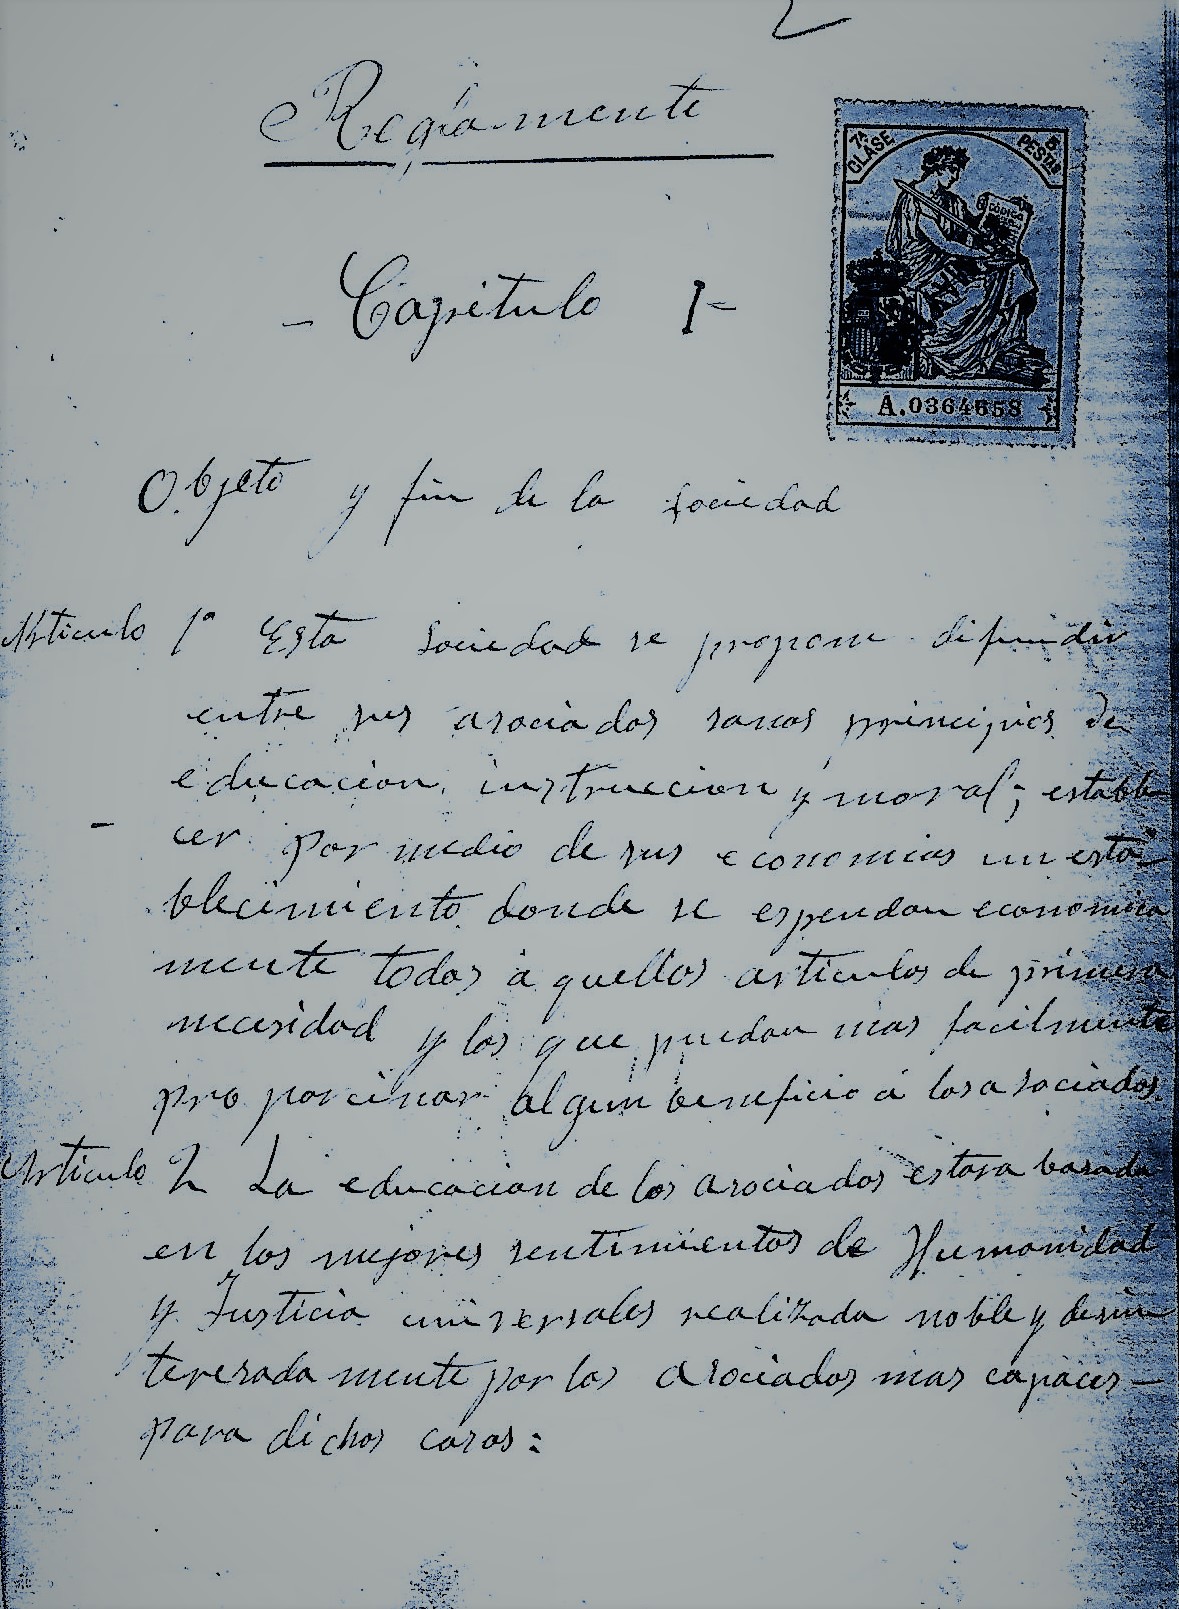 2
Reglamente
7ª CLASE
5 PESTAS
CÓDIGO
- Capitulo I -
A.0364658
Objeto y fin de la sociedad
Articulo 1º Esta Sociedad se propone difundir
entre sus asociados sanos principios de
educacion, instruccion y moral; estable
cer por medio de sus economias un esta
blecimiento donde se espendan economica
mente todos aquellos articulos de primera
necesidad y los que puedan mas facilmente
proporcinar algun beneficio á los asociados.
Articulo 2 La educacion de los asociados estara basada
en los mejores sentimientos de Humanidad
y Justicia universales realizada noble y desin
teresada mente por los asociados mas capaces —
para dichos casos: